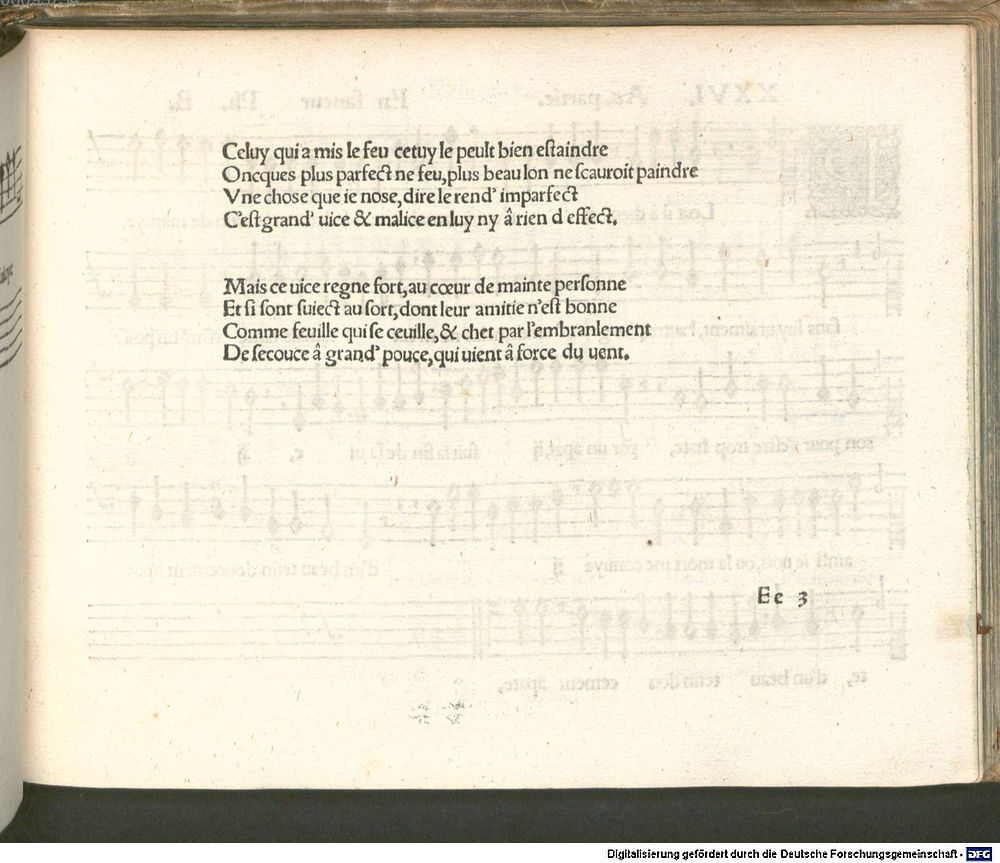 Celuy qui a mis le feu cetuy le peult bien estaindre
Oncques plus parfect ne feu, plus beau lon ne scauroit paindre
Vne chose que ie nose, dire le rend' imparfect
C'est grand' uice & malice en luy ny â rien d effect.
Mais ce uice regne fort, au cœur de mainte personne
Et si sont suiect au sort, dont leur amitie n'est bonne
Comme feuille qui se ceuille, & chet par l'embranlement
De secouce â grand' pouce, qui uient â force du uent.
Ee 3
Digitalisierung gefördert durch die Deutsche Forschungsgemeinschaft - DFG